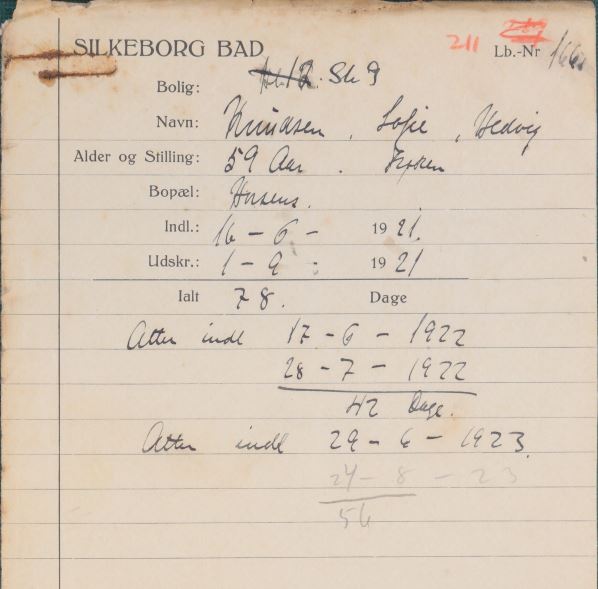 SILKEBORG BAD 211 Lb.-Nr 166
Bolig: St 9
Navn: Knudsen, Sofie, Hedvig
Alder og Stilling: 59 Aar. Frøken
Bopæl: Horsens.
Indl.: 16 - 6 - 1921.
Udskr.: 1 - 9 - 1921
Ialt 78. Dage
Atter indl 17 - 6 - 1922
28 - 7 - 1922
42 Dage.
Atter indl 29 - 6 - 1923.
24 - 8 - 23
56